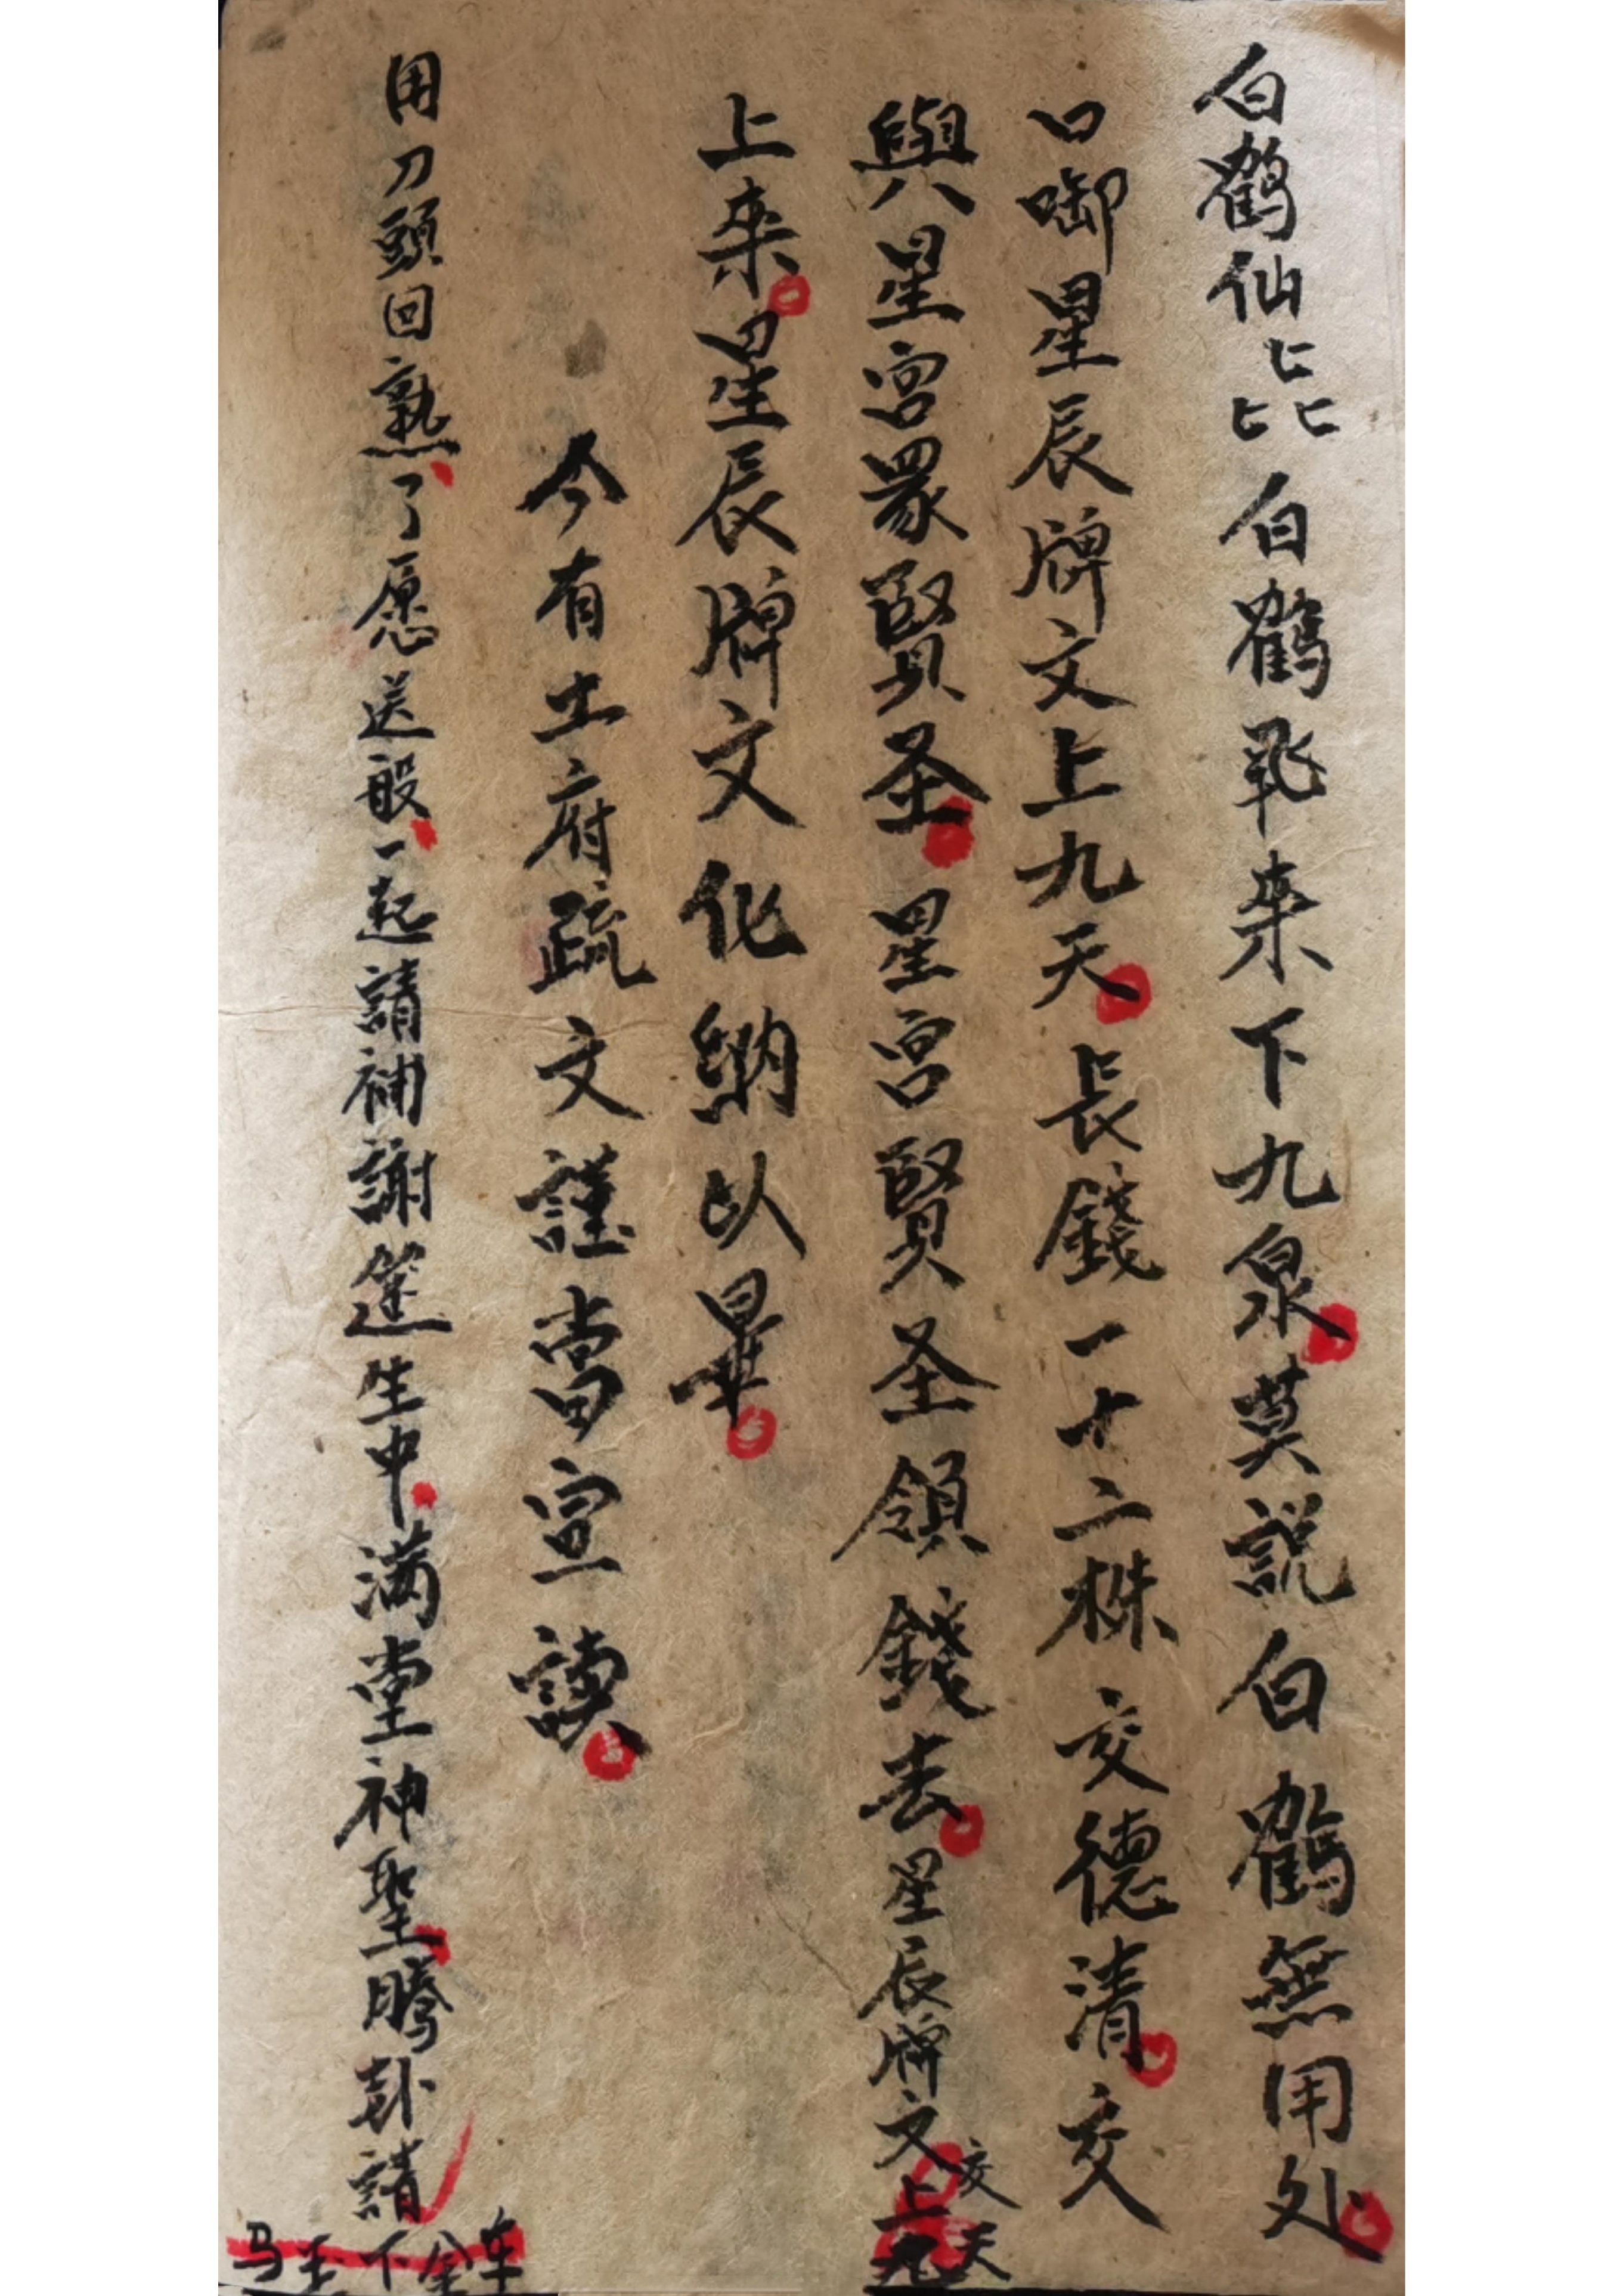 白鶴仙匕匕匕白鶴飛來下九泉莫説白鶴無用处
口啣星辰牌文上九天長錢一十二株交德清交
與星宮眾賢圣星宮賢圣領錢去星辰牌文交上九天
上来星辰牌文化納以畢
今有土府疏文謹當宣讀
用刀頭回熟了愿送般一起請補謝筵生中满堂神聖腾卦請
马王下金车